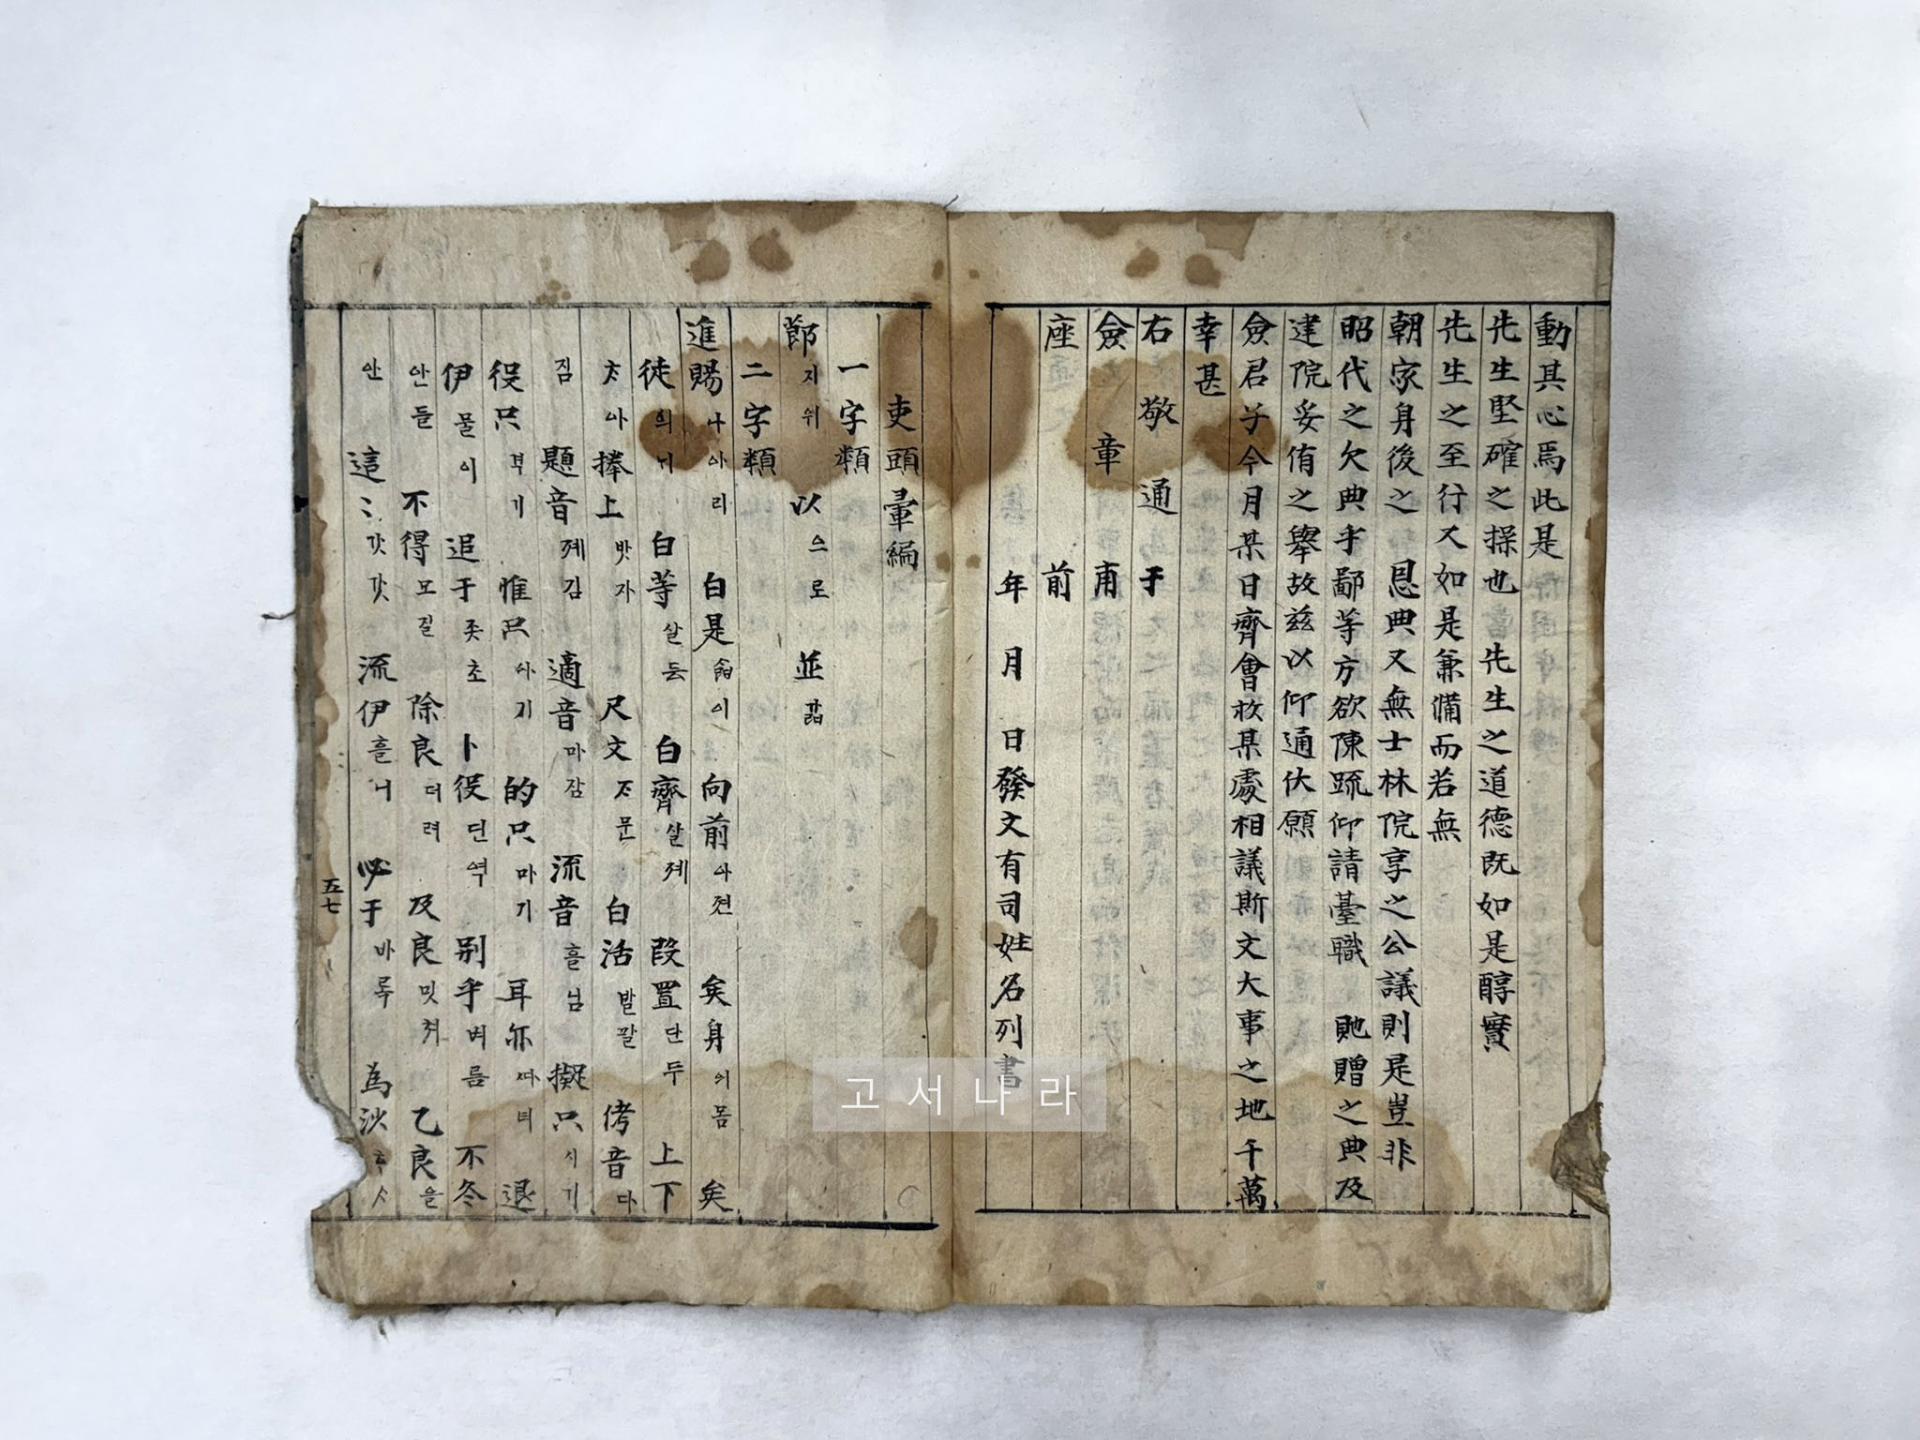 動其心焉此是
先生堅確之操也當先生之道德既如是醇實
先生之至行又如是兼備而若無
朝家身後之恩典又無士林院享之公議則是豈非
昭代之欠典乎鄙等方欲陳疏仰請臺職貤贈之典及
建院妥侑之舉故玆以仰通伏願
僉君子今月某日齊會於某處相議斯文大事之地千萬
幸甚
右敬通于
僉章甫
座前
年月日發文有司姓名列書
吏頭彙編
一字類
節지위 以으로 並
二字類
進賜나아리 白是이 向前아젼 矣身의몸 矣
徒의 白等살든 白齊살졔 叚置단두 上下
차아 捧上밧자 尺文자문 白活발괄 侤音다
짐 題音졔김 適音마참 流音흘님 擬只시기
役只격기 惟只사기 的只마기 耳亦 退
伊물이 追于좃초 卜役딘역 別乎벼름 不冬
안들 不得모질 除良더러 及良밋쳐 乙良을
안 這〻갓갓 流伊흘니 必于바록 為沙하사
五七
고서나라